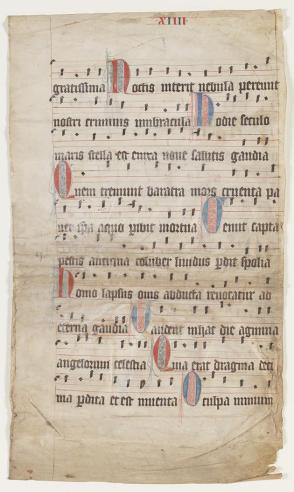 XIIII
gratissima Noctis interit nebula pereunt
nostri criminis umbracula Hodie seculo
maris stella est enixa nove salutis gaudia
Quem tremunt baratra mors cruenta pa
vet ipsa a quo peribit mortua Gemit capta
pestis antiqua coluber lividus perdit spolia
Homo lapsus ovis abducta revocatur ad
eterna gaudia Gaudent in hac die agmina
angelorum celestia Quia erat dragma deci
ma perdita et est inventa O culpa nimium